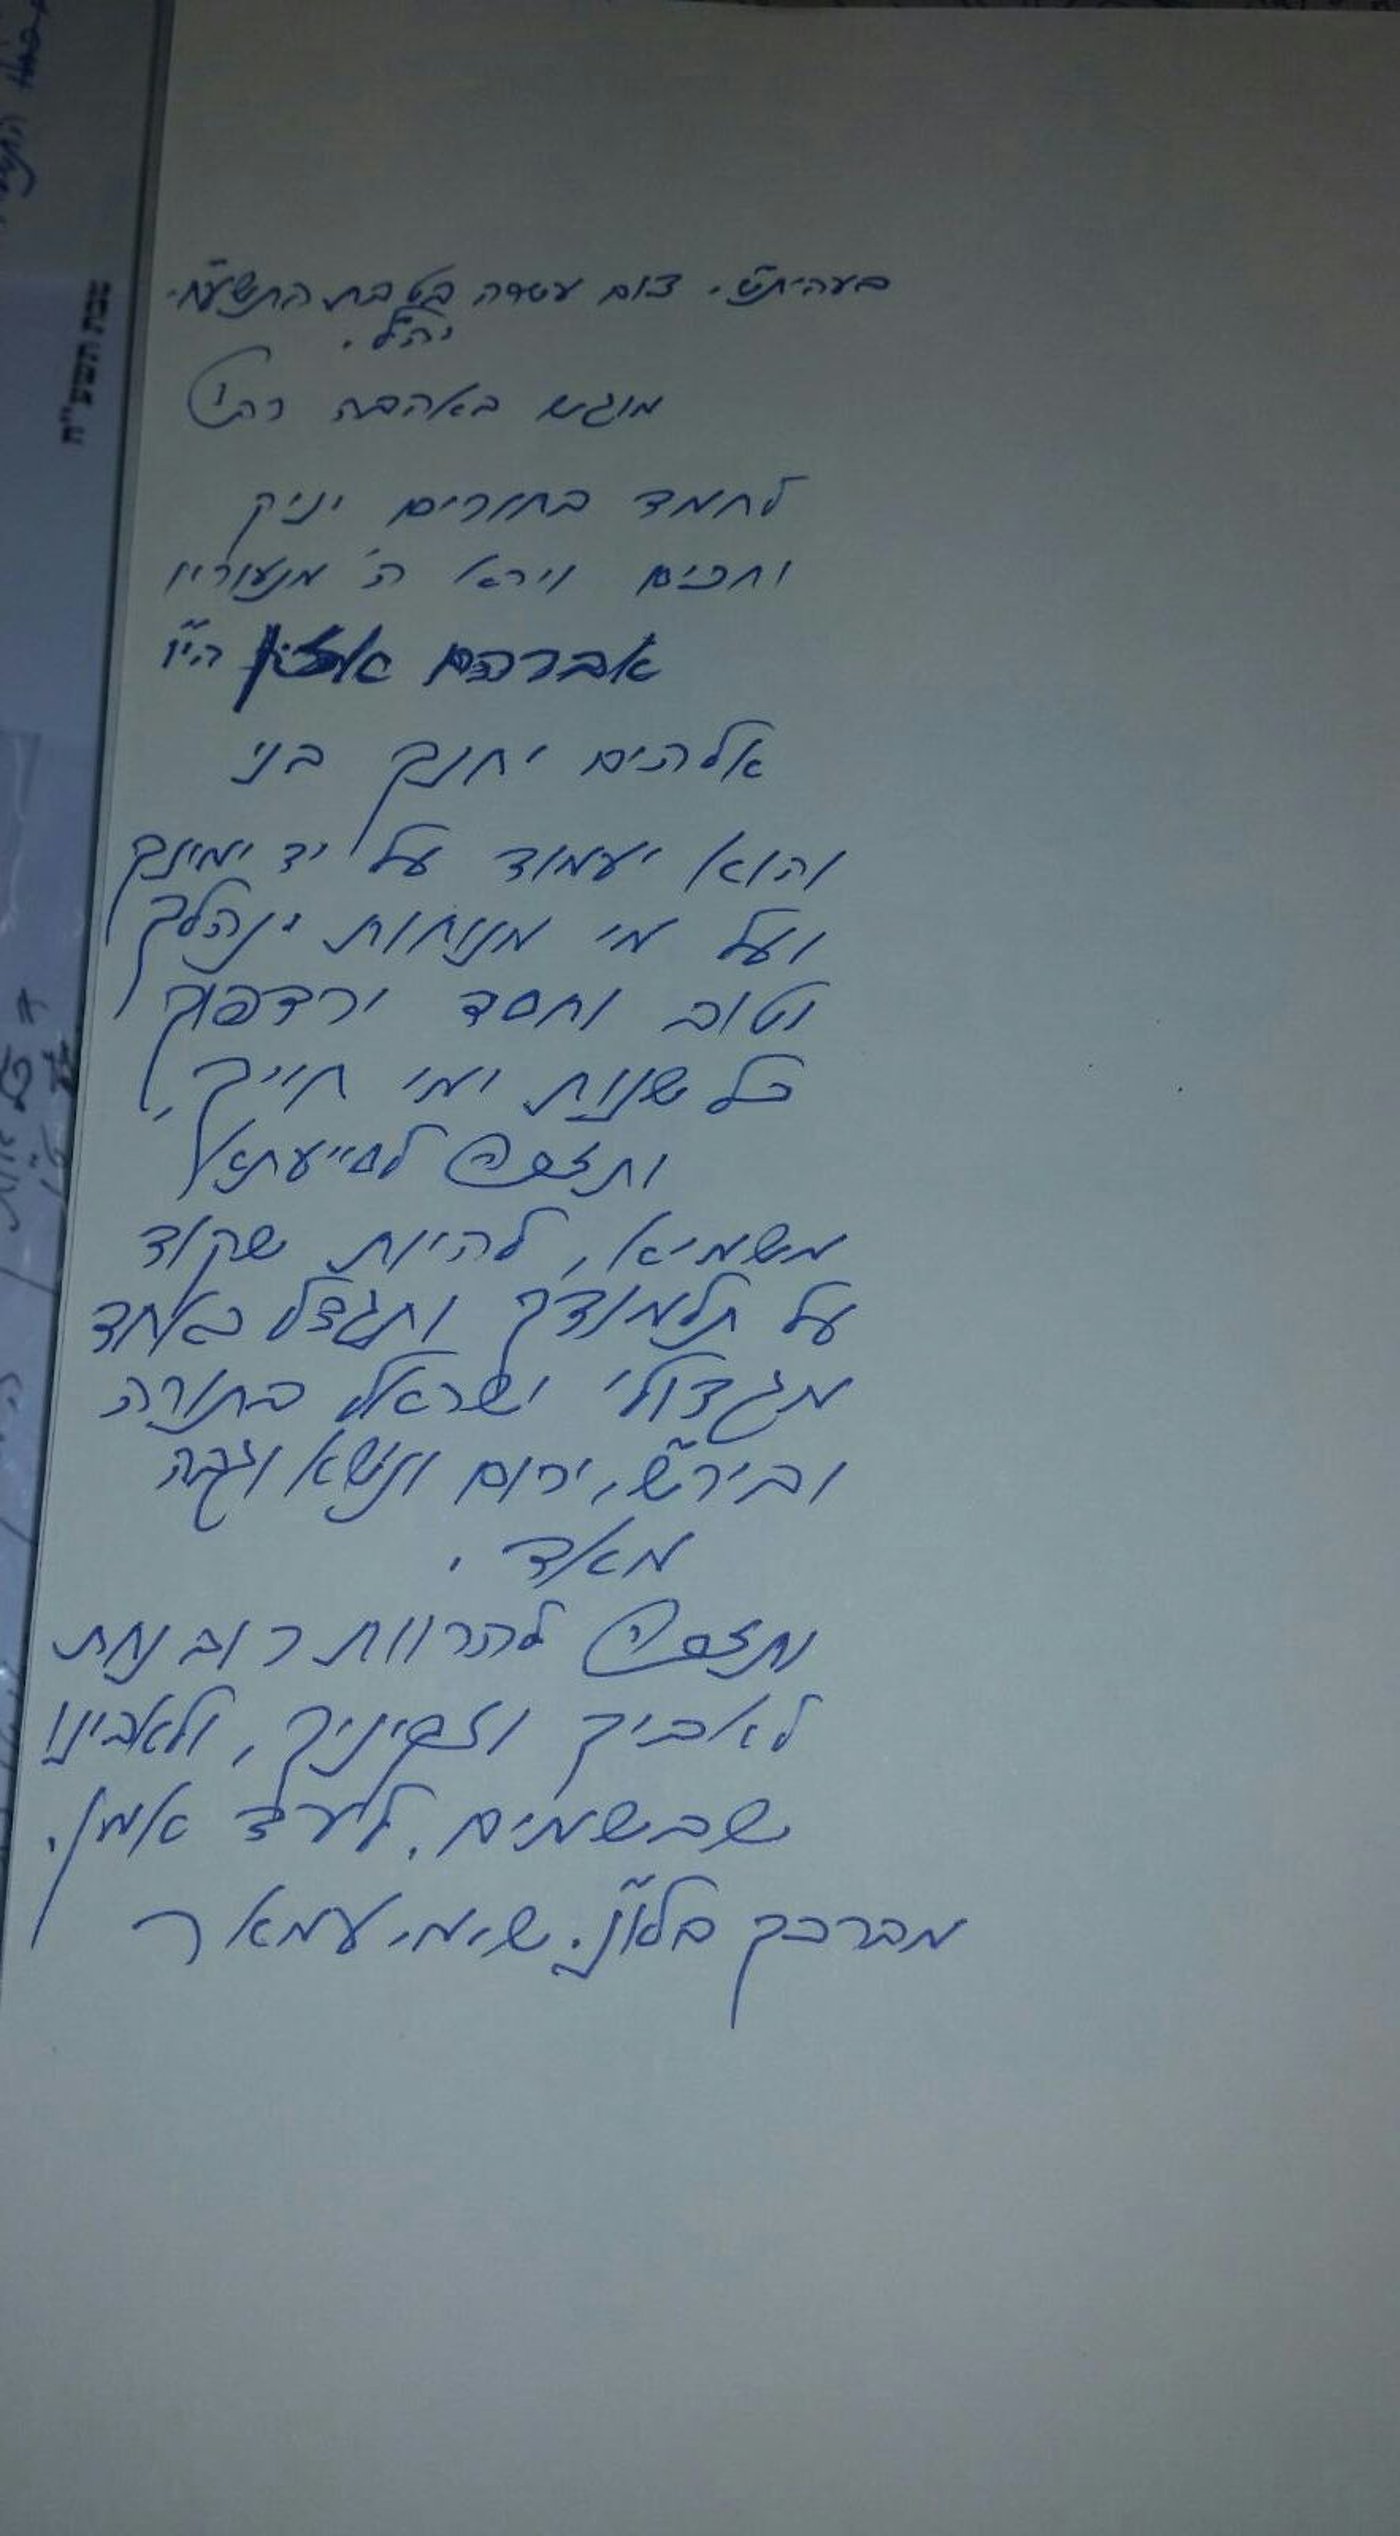 בעהית"ש. צום עשרה בטבת התשע"ח.
יה"ל.
מוגש באהבה רבה
לחמד בחורים יניק
וחכים וירא ה' מנעוריו
אברהם הי"ו
אלהים יחנך בני
והוא יעמוד על יד ימינך
ועל מי מנוחות ינהלך
וטוב וחסד ירדפוך
כל שנות ימי חייך,
ותזכה לסייעתא
משמיא, להיות שקוד
על תלמודך ותגדל כאחד
מגדולי ישראל בתורה
ובי"ש, ירום ונישא וגבה
מאד.
ותזכה להרוות רוב נחת
לאביך וזקיניך, ולאבינו
שבשמים. לעד אמן.
מברכך בלו"נ. שימי עמאר
טבת תשע"ח